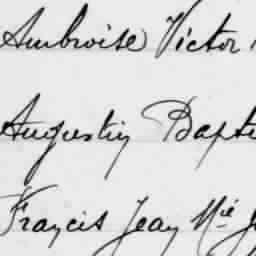 Ambroise Victor
Augustin Bapti
Francis Jean Mie J